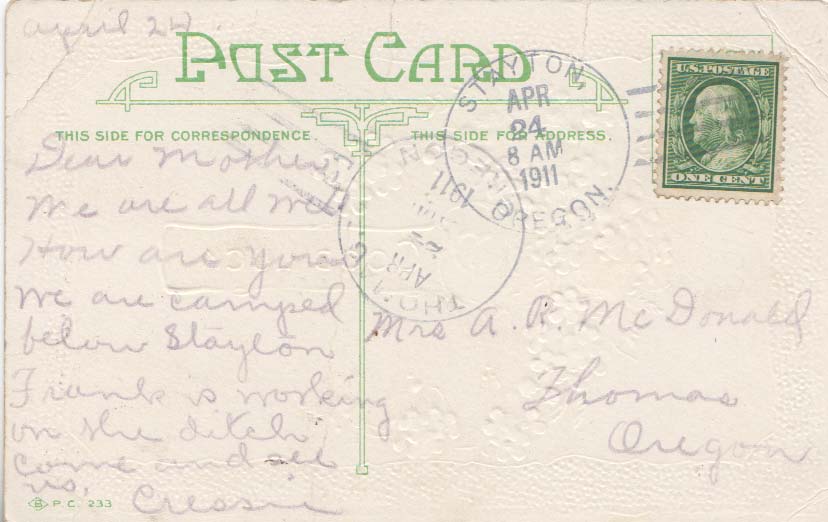 april 24.
POST CARD
THIS SIDE FOR CORRESPONDENCE.
THIS SIDE FOR ADDRESS.
STAYTON, OREGON.
APR
24
8 AM
1911
U.S. POSTAGE
ONE CENT
THOMAS
APR
1911
Dear Mother
We are all well
How are you
We are camped
below Stayton
Frank is working
on the ditch
come and see
us,
Cressie
Mrs A. R. McDonald
Thomas
Oregon
B P.C. 233